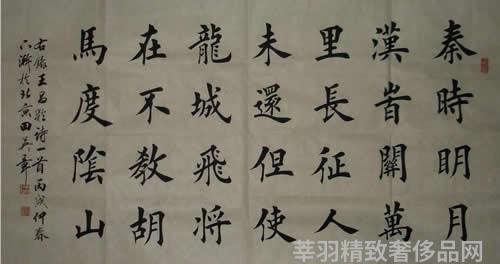 秦時明月
漢旹關萬
里長征人
未還但使
龍城飛将
在不教胡
馬度陰山
右錄王昌齡詩一首丙戌仲春
下澣於北京田英章
莘羽精致奢侈品网